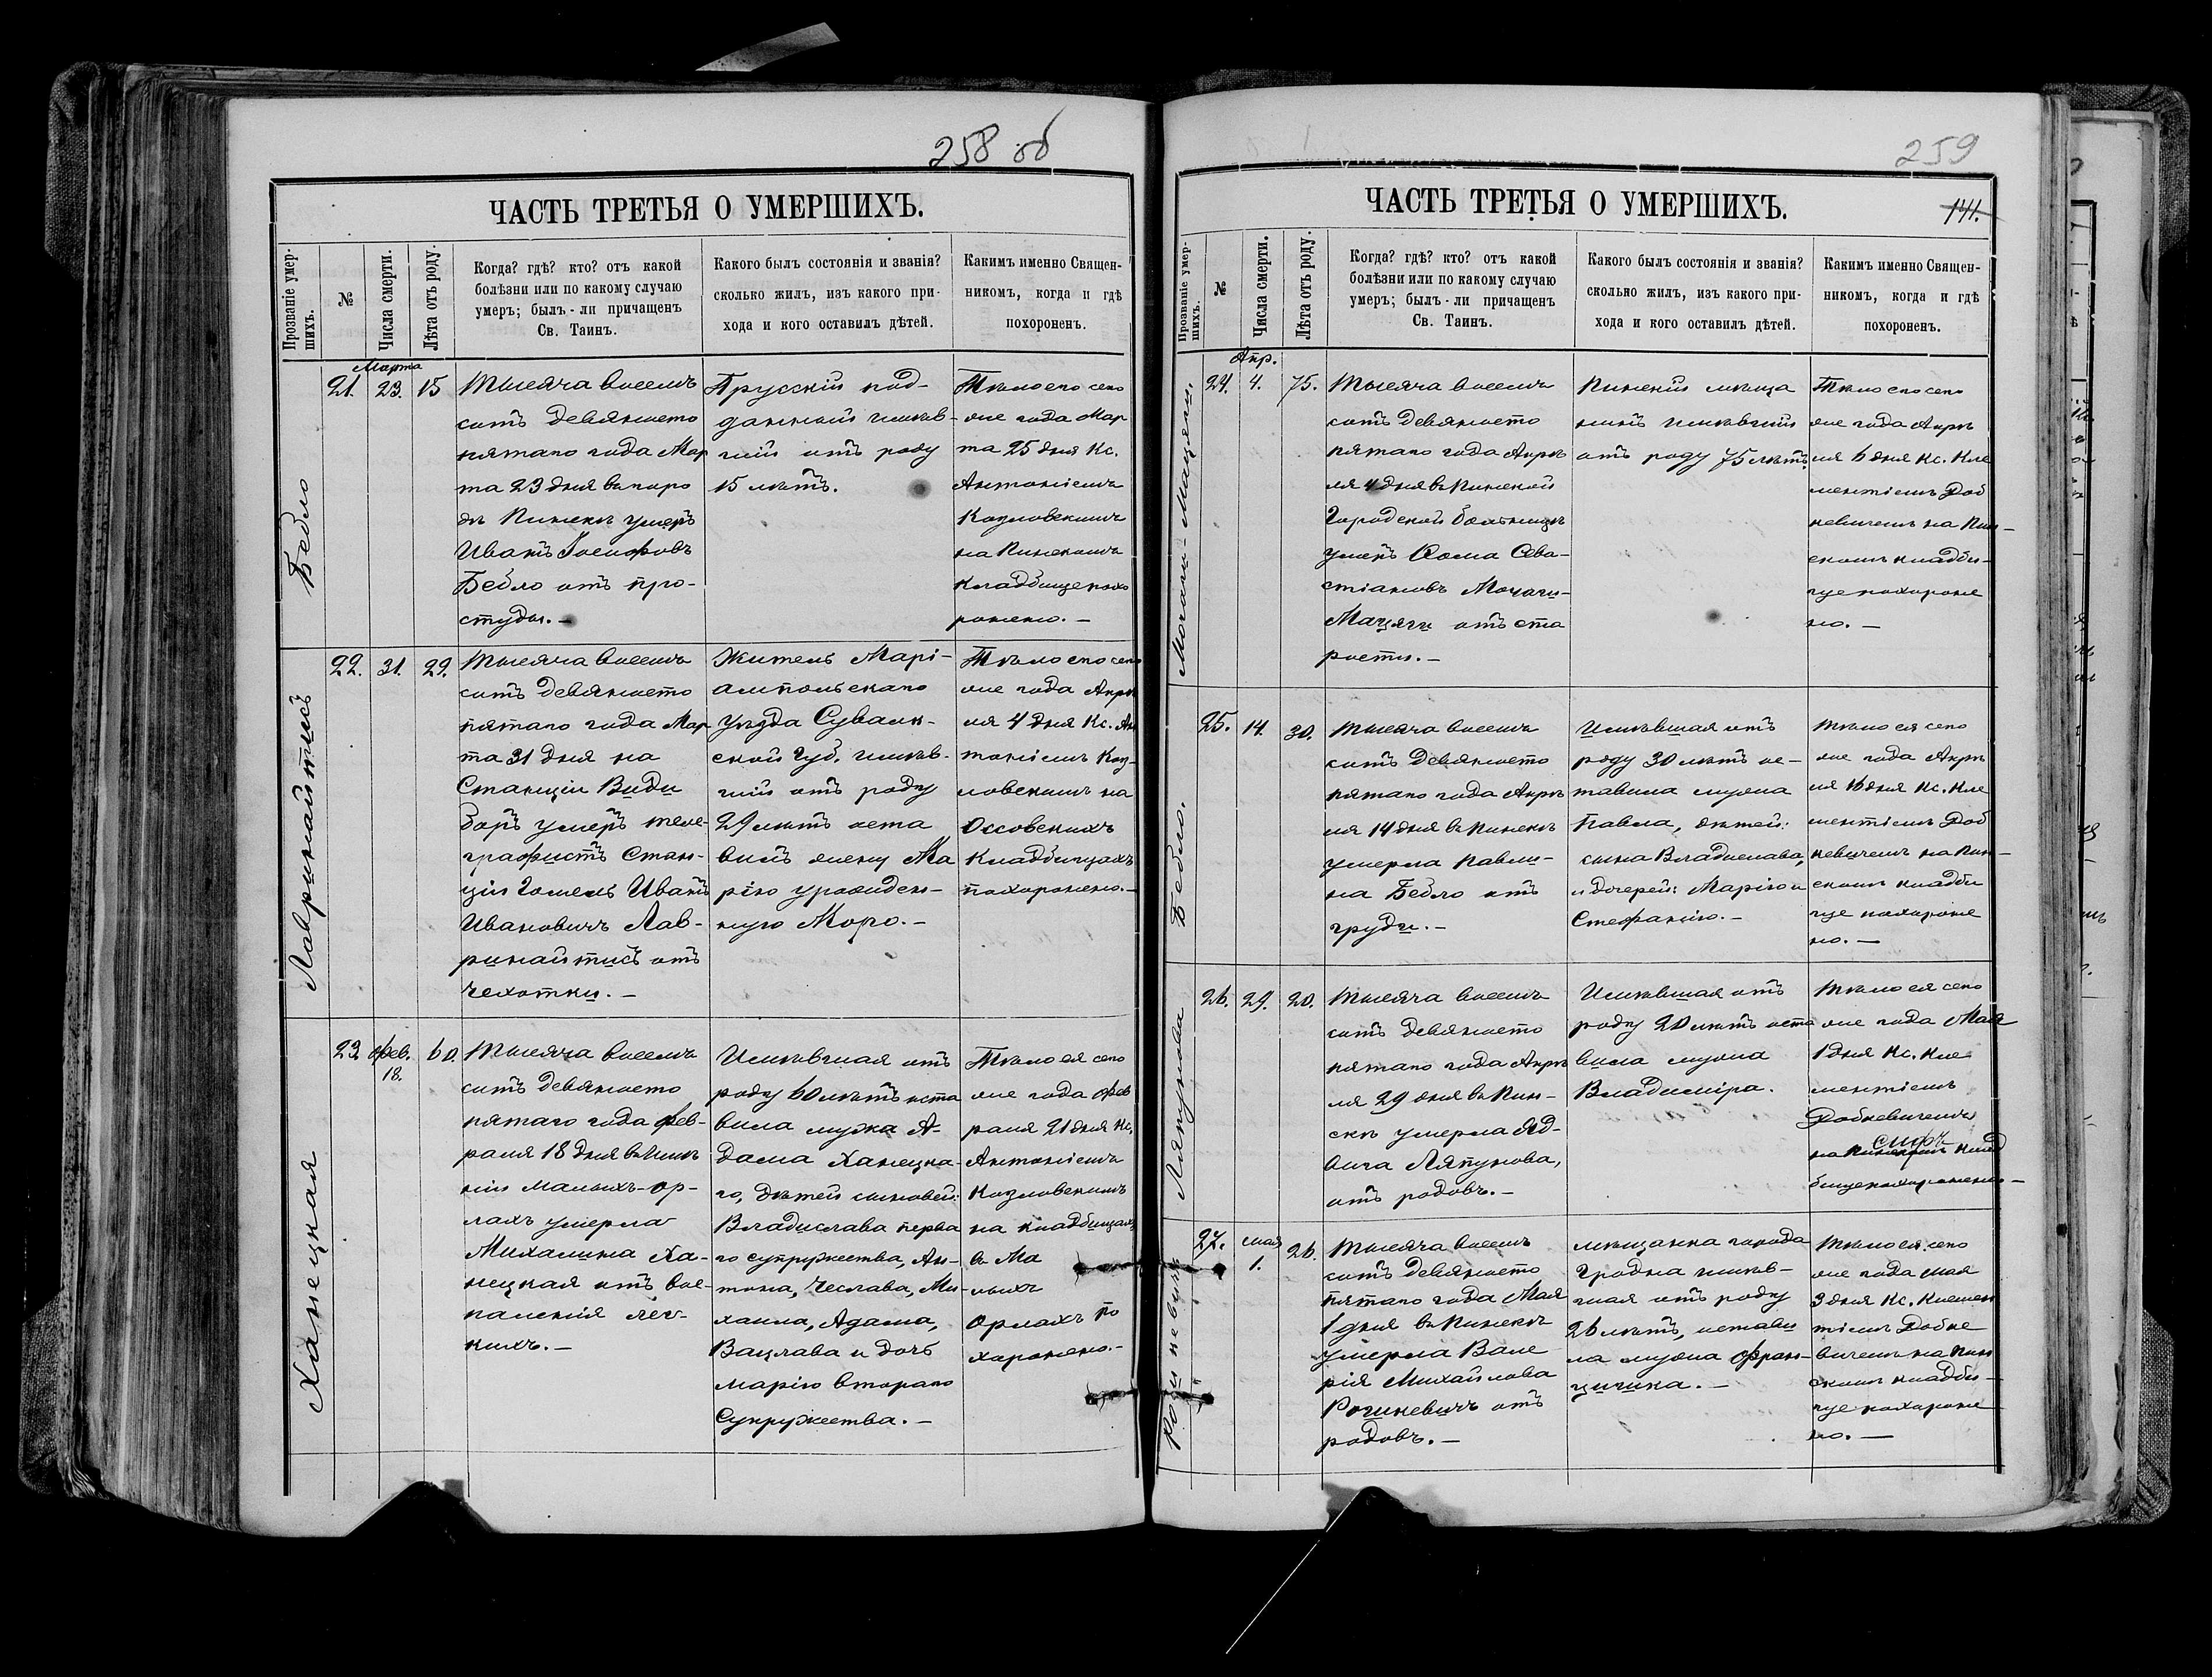 258 об
ЧАСТЬ ТРЕТЬЯ О УМЕРШИХЪ.
Прозваніе умер-
шихъ.
№
Числа смерти.
Лѣта отъ роду.
Когда? гдѣ? кто? отъ какой
болѣзни или по какому случаю
умеръ; былъ-ли причащенъ
Св. Таинъ.
Какого былъ состоянія и званія?
сколько жилъ, изъ какого при-
хода и кого оставилъ дѣтей.
Какимъ именно Священ-
никомъ, когда и гдѣ
похороненъ.
Бебло
Марта
21. 23. 15
Тысяча восемь
сотъ девяносто
пятаго года Мар
та 23 дня въ горо
дѣ Пинскѣ умеръ
Иванъ Іосифовъ
Бебло отъ про-
студы. —
Прусскій под-
данный имѣв-
шій отъ роду
15 лѣтъ.
Тѣло его сего
же года Мар
та 25 дня Кс.
Антоніемъ
Козловскимъ
на Пинскомъ
кладбище похо
ронено. —
Лавринайтисъ
22. 31. 29.
Тысяча восемь
сотъ девяносто
пятаго года Мар
та 31 дня на
Станціи Види
боръ умеръ теле-
графистъ Стан-
ціи Гомель Иванъ
Ивановичъ Лав-
ринайтисъ отъ
чехотки. —
Житель Марі-
ампольскаго
уѣзда Сувалк-
ской Губ. имѣв-
шій отъ роду
29 лѣтъ оста
вилъ жену Ма
рію урожден-
ную Моро. —
Тѣло его сего
же года Апрѣ
ля 4 дня Кс. Ан
тоніемъ Коз-
ловскимъ на
Оссовскихъ
Кладбищахъ
похоронено. —
Ханецкая
23. Фев. 60.
18.
Тысяча восемь
сотъ девяносто
пятаго года Фев-
раля 18 дня въ имѣ
ніи Малыхъ-Ор-
лахъ умерла
Михалина Ха-
нецкая отъ вос-
паленія лег-
кихъ. —
Имѣвшая отъ
роду 60 лѣтъ оста
вила мужа А-
дама Ханецка-
го, дѣтей сыновей:
Владислава перва
го супружества, Ан-
тона, Чеслава, Ми-
хаила, Адама,
Вацлава и дочь
Марію втораго
Супружества. —
Тѣло ея сего
же года Фев
раля 21 дня Кс.
Антоніемъ
Козловскимъ
на кладбищахъ
въ Ма
лыхъ
Орлахъ по
хоронено. —
259
ЧАСТЬ ТРЕТЬЯ О УМЕРШИХЪ.
141.
Прозваніе умер-
шихъ.
№
Числа смерти.
Лѣта отъ роду.
Когда? гдѣ? кто? отъ какой
болѣзни или по какому случаю
умеръ; былъ-ли причащенъ
Св. Таинъ.
Какого былъ состоянія и званія?
сколько жилъ, изъ какого при-
хода и кого оставилъ дѣтей.
Какимъ именно Священ-
никомъ, когда и гдѣ
похороненъ.
Апр.
24. 4. 75.
Тысяча восемь
сотъ девяносто
пятаго года Апрѣ
ля 4 дня въ Пинской
Городской больницѣ
умеръ Сева-
стіановъ
отъ ста
рости. —
Пинскій мѣща
нинъ имѣвшій
отъ роду 75 лѣтъ.
Тѣло его сего
же года Апрѣ
ля 6 дня Кс. Кле
ментіемъ Доб
кевичемъ на Пин-
скомъ кладби-
ще похороне
но. —
Бебло.
25. 14. 30.
Тысяча восемь
сотъ девяносто
пятаго года Апрѣ
ля 14 дня въ Пинскѣ
умерла Павли-
на Бебло отъ
груди. —
Имѣвшая отъ
роду 30 лѣтъ ос-
тавила мужа
Павла, дѣтей:
сына Владислава,
и дочерей: Марію и
Стефанію. —
Тѣло ея сего
же года Апрѣ
ля 16 дня Кс. Кле
ментіемъ Доб
кевичемъ на Пин-
скомъ кладби
ще похороне
но. —
Ляпунова
26. 29. 20.
Тысяча восемь
сотъ девяносто
пятаго года Апрѣ
ля 29 дня въ Пин-
скѣ умерла Яд-
вига Ляпунова,
отъ родовъ. —
Имѣвшая отъ
роду 20 лѣтъ оста
вила мужа
Владиміра.
Тѣло ея сего
же года Мая
1 дня Кс. Кле
ментіемъ
Добкевичемъ
на клад
бище похоронено —
27. Мая 26.
1.
Тысяча восемь
сотъ девяносто
пятаго года Мая
1 дня въ Пинскѣ
умерла Вале
рія Михайлова
Рогиневичъ отъ
родовъ. —
мѣщанка города
Гродна имѣв-
шая отъ роду
26 лѣтъ, остави
ла мужа Фран-
цишка. —
Тѣло ея сего
же года Мая
3 дня Кс. Клемен
тіемъ Добке
вичемъ на Пин
скомъ кладби-
ще похороне
но. —